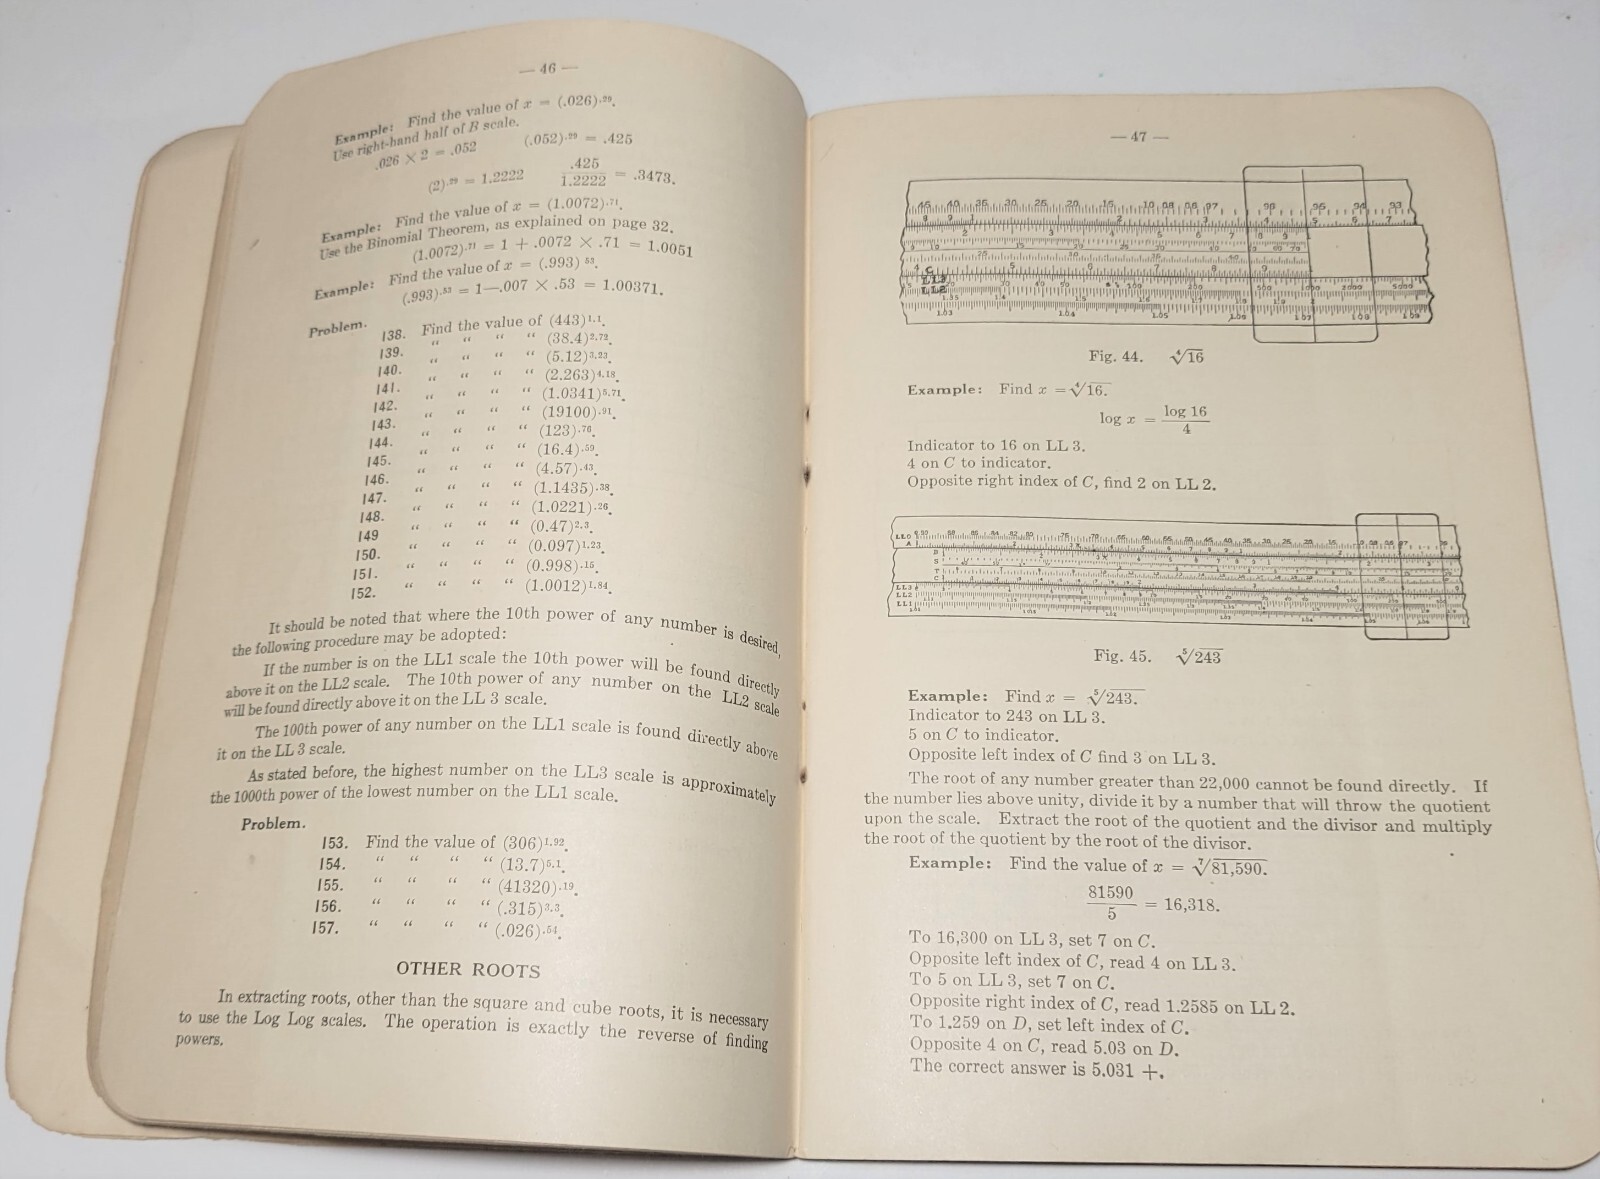 — 46 —
Example: Find the value of x = (.026)·²⁹.
Use right-hand half of B scale.
.026 × 2 = .052 (.052)·²⁹ = .425
(2)·²⁹ = 1.2222 .425/1.2222 = .3473.
Example: Find the value of x = (1.0072)·⁷¹.
Use the Binomial Theorem, as explained on page 32.
(1.0072)·⁷¹ = 1 + .0072 × .71 = 1.0051
Example: Find the value of x = (.993)·⁵³.
(.993)·⁵³ = 1—.007 × .53 = 1.00371.
Problem.
138. Find the value of (443)¹·¹.
139. “ “ “ “ (38.4)²·⁷².
140. “ “ “ “ (5.12)³·²³.
141. “ “ “ “ (2.263)⁴·¹⁸.
142. “ “ “ “ (1.0341)⁵·⁷¹.
143. “ “ “ “ (19100)·⁹¹.
144. “ “ “ “ (123)·⁷⁶.
145. “ “ “ “ (16.4)·⁵⁹.
146. “ “ “ “ (4.57)·⁴³.
147. “ “ “ “ (1.1435)·³⁸.
148. “ “ “ “ (1.0221)·²⁶.
149 “ “ “ “ (0.47)²·³.
150. “ “ “ “ (0.097)¹·²³.
151. “ “ “ “ (0.998)·¹⁵.
152. “ “ “ “ (1.0012)¹·⁸⁴.
It should be noted that where the 10th power of any number is desired,
the following procedure may be adopted:
If the number is on the LL1 scale the 10th power will be found directly
above it on the LL2 scale. The 10th power of any number on the LL2 scale
will be found directly above it on the LL 3 scale.
The 100th power of any number on the LL1 scale is found directly above
it on the LL 3 scale.
As stated before, the highest number on the LL3 scale is approximately
the 1000th power of the lowest number on the LL1 scale.
Problem.
153. Find the value of (306)¹·⁹².
154. “ “ “ “ (13.7)⁵·¹.
155. “ “ “ “ (41320)·¹⁹.
156. “ “ “ “ (.315)³·³.
157. “ “ “ “ (.026)·⁵⁴.
OTHER ROOTS
In extracting roots, other than the square and cube roots, it is necessary
to use the Log Log scales. The operation is exactly the reverse of finding
powers.
— 47 —
C
LL3
LL2
Fig. 44. ⁴√16
Example: Find x = ⁴√16.
log x = log 16/4
Indicator to 16 on LL 3.
4 on C to indicator.
Opposite right index of C, find 2 on LL 2.
LL0
A
B
S
T
C
LL3
LL2
LL1
Fig. 45. ⁵√243
Example: Find x = ⁵√243.
Indicator to 243 on LL 3.
5 on C to indicator.
Opposite left index of C find 3 on LL 3.
The root of any number greater than 22,000 cannot be found directly. If
the number lies above unity, divide it by a number that will throw the quotient
upon the scale. Extract the root of the quotient and the divisor and multiply
the root of the quotient by the root of the divisor.
Example: Find the value of x = ⁷√81,590.
81590/5 = 16,318.
To 16,300 on LL 3, set 7 on C.
Opposite left index of C, read 4 on LL 3.
To 5 on LL 3, set 7 on C.
Opposite right index of C, read 1.2585 on LL 2.
To 1.259 on D, set left index of C.
Opposite 4 on C, read 5.03 on D.
The correct answer is 5.031 +.